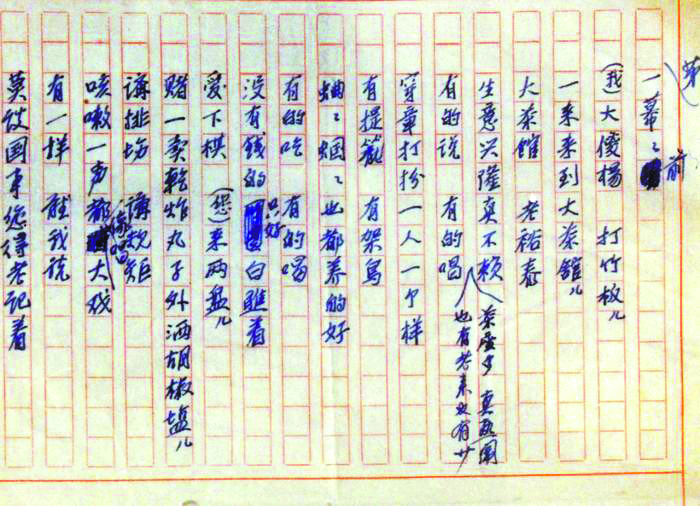 (第)
一幕之前
(我)大傻杨 打竹板儿
一来来到大茶馆儿
大茶馆 老裕泰
生意兴隆真不赖
茶座多 真热闹
也有老来也有少
有的说 有的唱
穿章打扮一人一个样
有提笼 有架鸟
蛐々蝈々也都养的好
有的吃 有的喝
没有钱的只好白瞧着
爱下棋 (您)来两盘儿
赌一卖乾炸丸子外洒胡椒盐儿
讲排场 讲规矩
咳嗽一声都像唱大戏
有一样 听我说
莫谈国事您得老记着